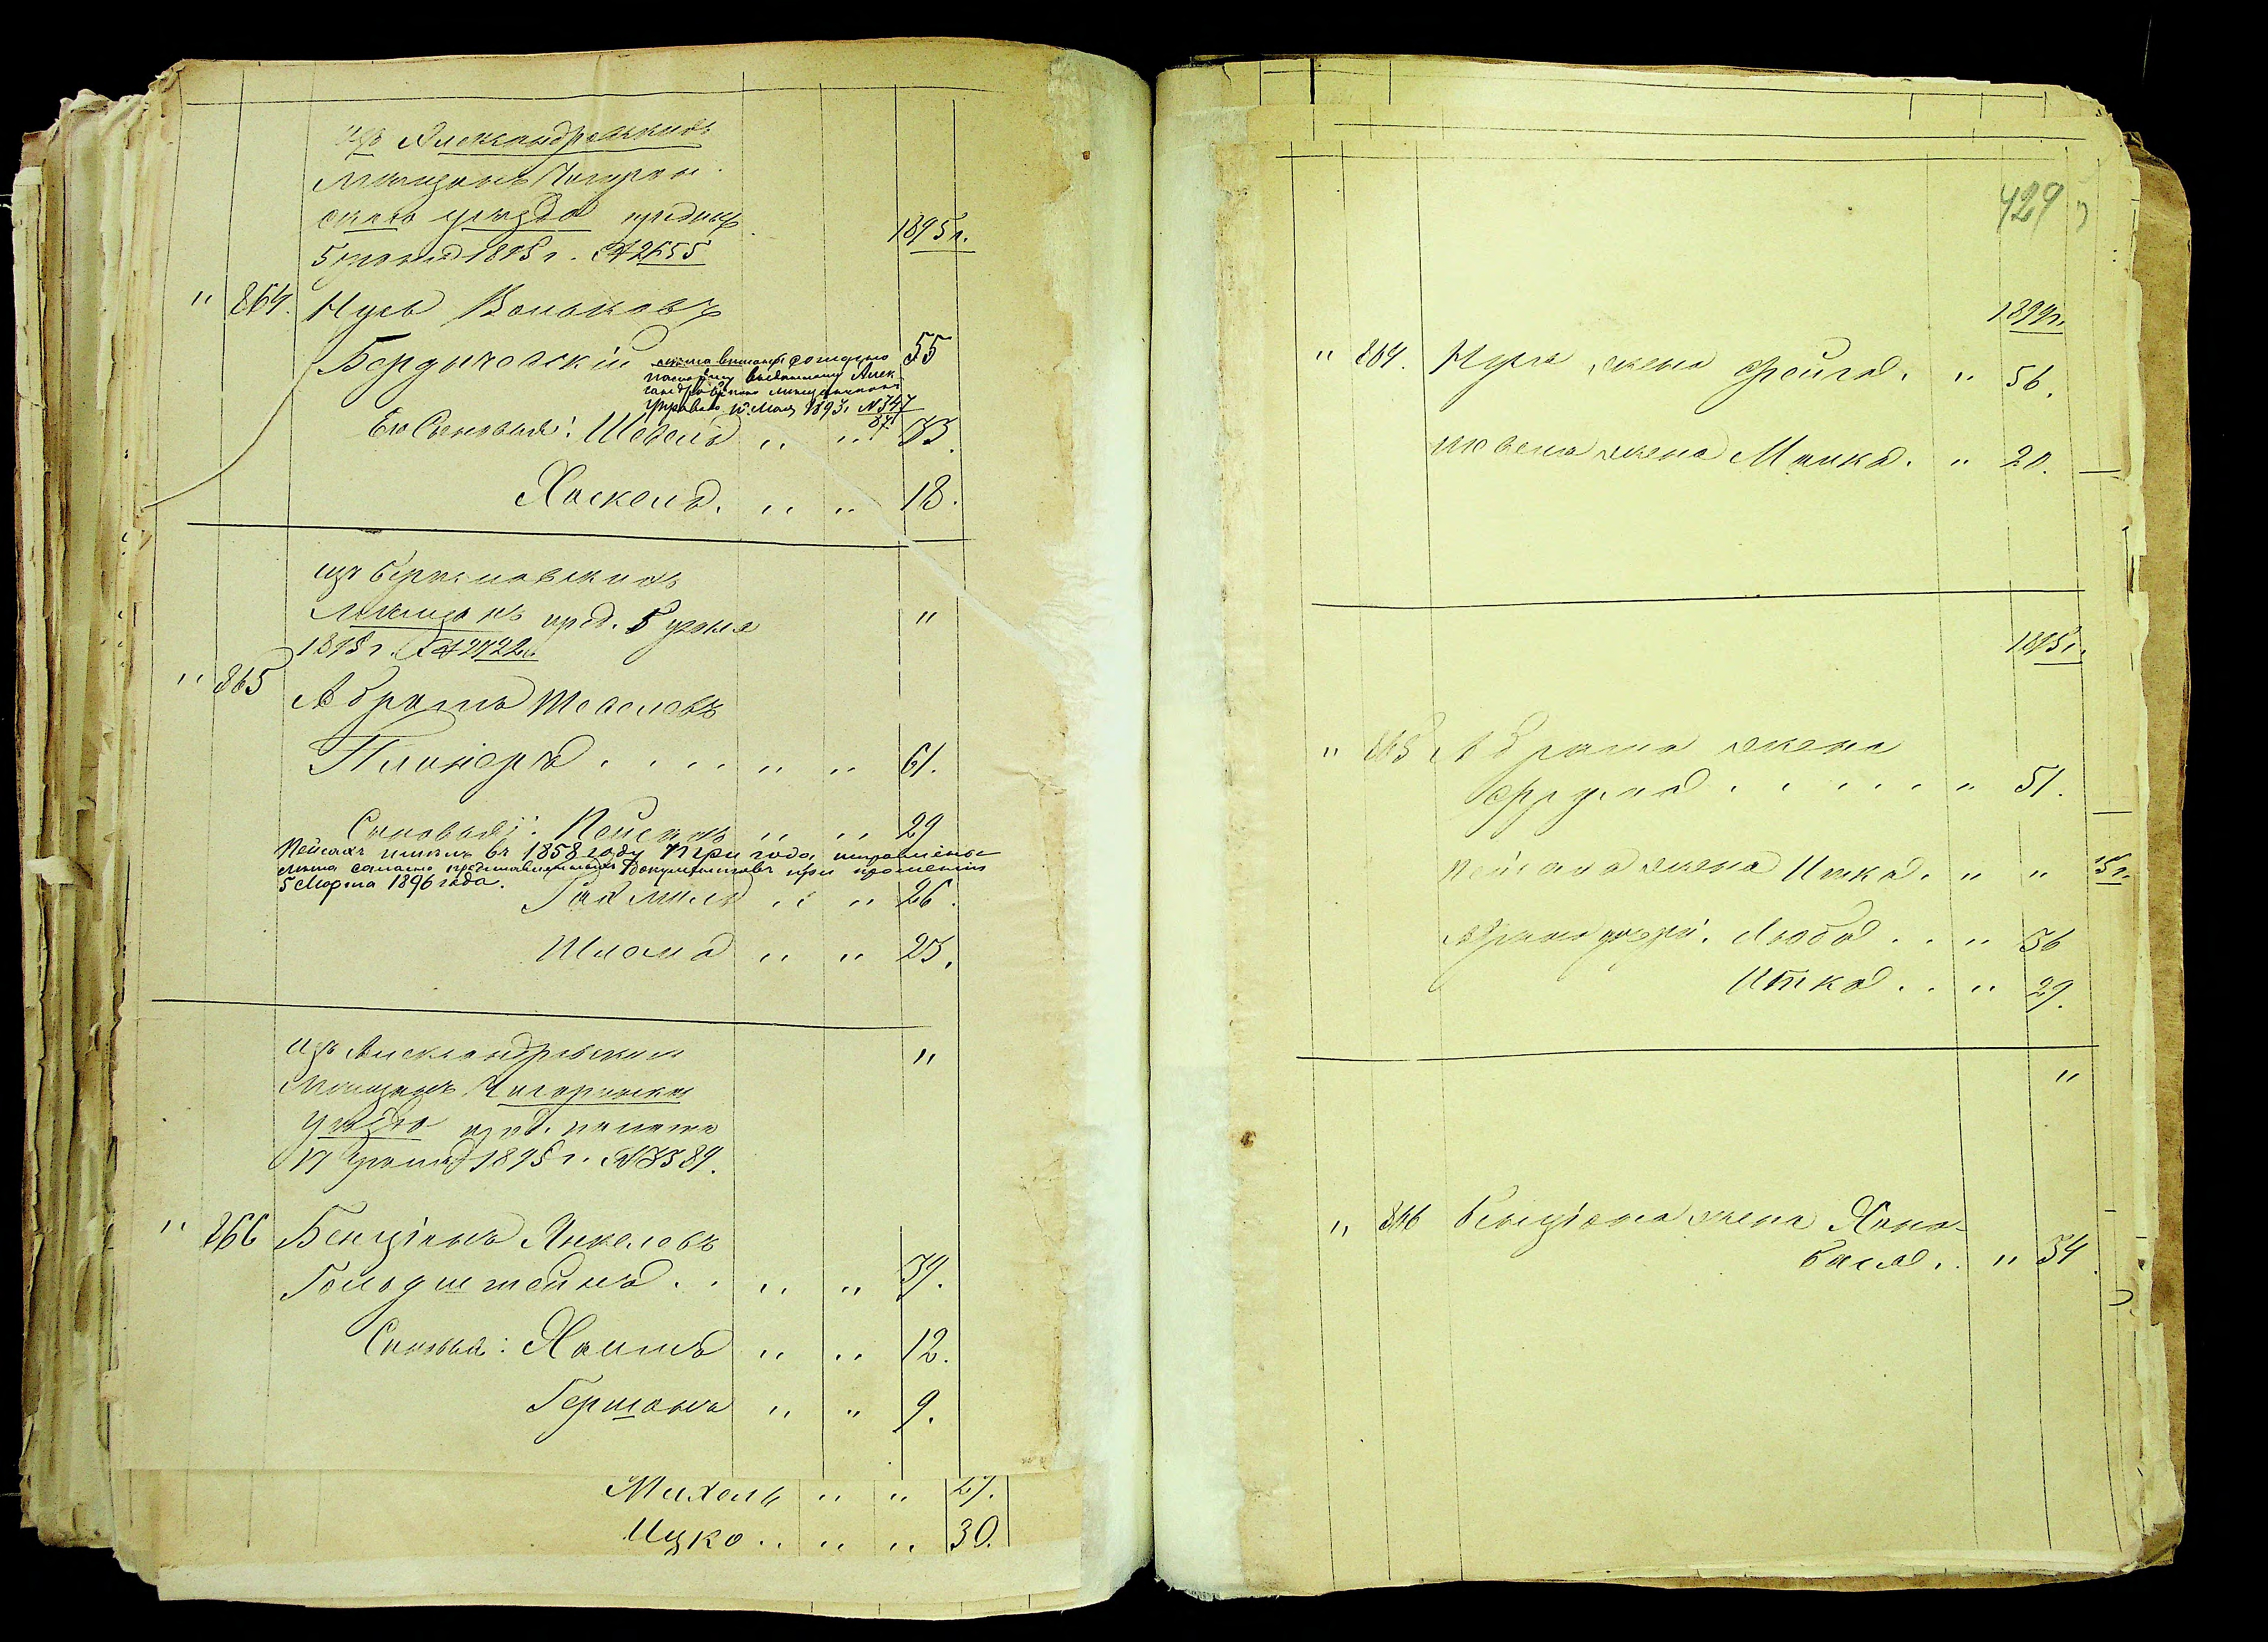 изъ Александровскихъ
мѣщанъ Чигирин
скаго уѣзда предпис
5 Іюня 1895 г. № 2655
1895 г.
" 864. Нусь Вольковъ
Бердичевскій 55
лѣта вписаны согласно
паспорту выданному Алек
сандровскою мѣщанскою
Управою 10 Мая 1893 г. № 347
Его Сыновья: Шевель " " 33.
Хаскель. " " 18.
изъ Бериславскихъ
мѣщанъ пред. 5 Іюня
1895 г. № 2722.
"
" 865 Абрамъ Шевелевъ
Плинеръ . . . . " " 61.
Сыновья: Пейсахъ " " 29
Пейсахъ имѣлъ въ 1858 году три года, исправлены
лѣта согласно представленныхъ документовъ при прошеніи
5 Марта 1896 года.
Рахмиль " " 26.
Шлома " " 23.
изъ Александровскихъ
"
мѣщанъ Чигиринскаго
уѣзда пред. палаты
17 Іюня 1895 г. № 3389.
" 866 Бенціонъ Янкелевъ
Гольдштейнъ . . " " 39.
Сыновья: Хаимъ " " 12.
Гершонъ " " 9.
Михель " " 27.
Ицко . . " " 30.
429
1895 г.
" 864. Нуся жена Фейга. " " 56.
Шевеля жена Малка. " 20.
1895 г.
" 865 Абрама жена
Фрума . . . . . " 51.
Пейсаха жена Итка. " "
Абрама дочери: Люба . . " 36
Итка . . " 29.
"
" 866 Бенціона жена Хана-
Бася. . " 34.